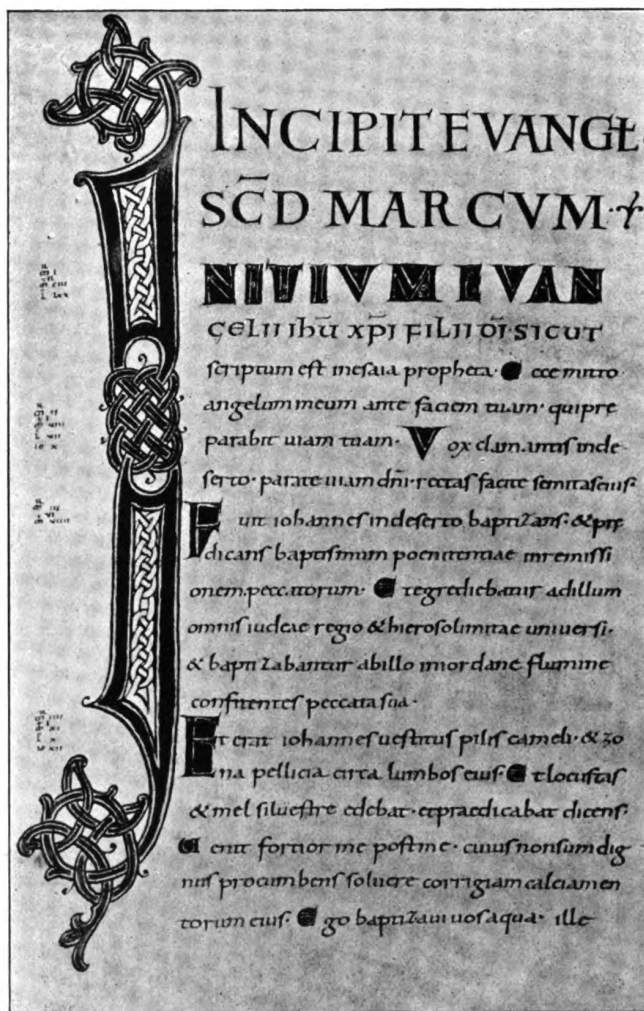 INCIPIT EVANGL
SCD MARCVM
INITIVM EVAN
GELII IHU XPI FILII DI·SICUT
scriptum est inesaia propheta· Ecce mitto
angelum meum ante faciem tuam· quipre
parabit uiam tuam· Vox clamantis inde
serto· parate uiam dni· rectas facite semitaseius·
Fuit iohannes indeserto baptizans· & pre
dicans baptismum poenitentiae inremissi
onem peccatorum· Etegrediebatur adillum
omnis iudeae regio & hierosolimitae uniuersi·
& baptizabantur abillo iniordane flumine
confitentes peccata sua·
Et erat iohannes uestitus pilis cameli· & zo
na pellicia circa lumbos eius· Et locustas
& mel siluestre edebat· etpraedicabat dicens·
Uenit fortior me postme· cuius nonsum dig
nus procumbens soluere corrigiam calciamen
torum eius· Ego baptizaui uos aqua· ille